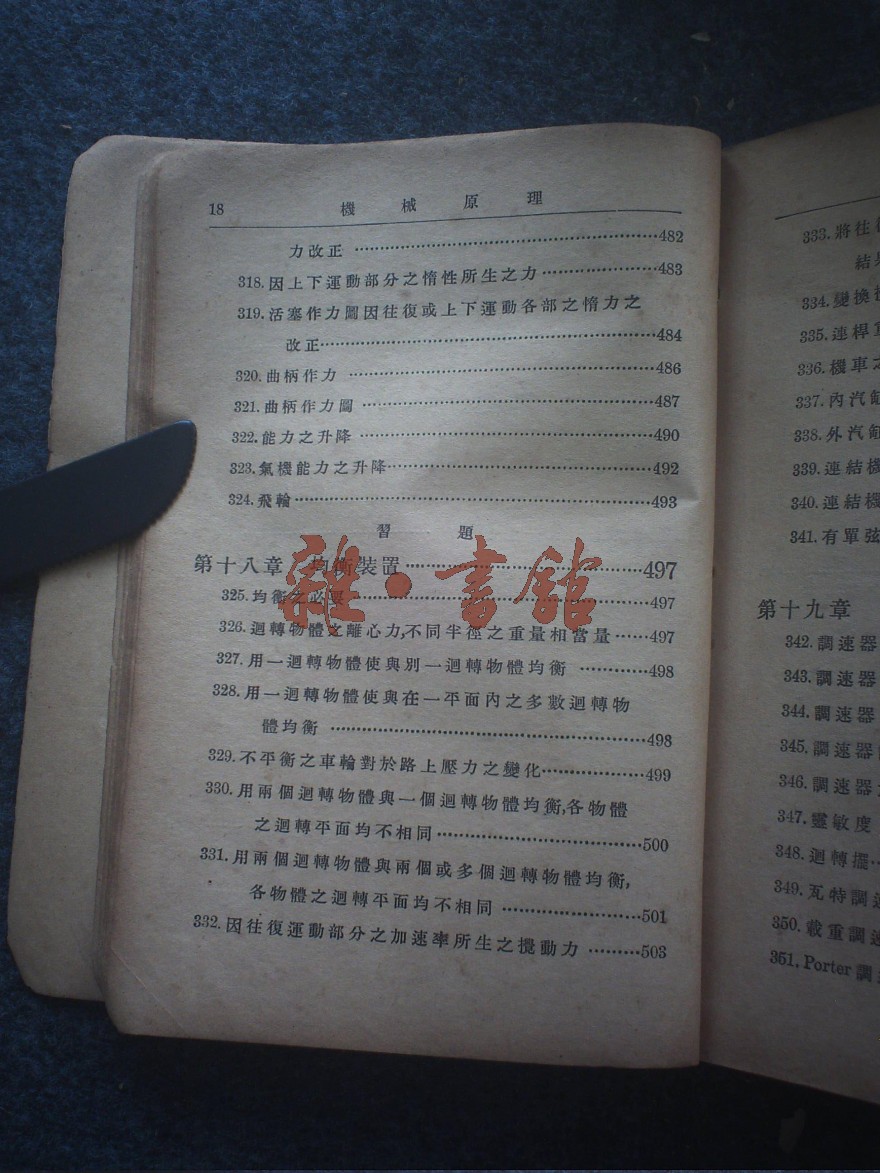 18 機械原理
力改正 ……482
318.因上下運動部分之惰性所生之力……483
319.活塞作力圖因往復或上下運動各部之惰力之
改正……484
320.曲柄作力 ……486
321.曲柄作力圖 ……487
322.能力之升降 ……490
323.氣機能力之升降……492
324.飛輪……493
習題
第十八章 均衡裝置……497
325.均衡之必要……497
326.迴轉物體之離心力,不同半徑之重量相當量……497
327.用一迴轉物體使與別一迴轉物體均衡 ……498
328.用一迴轉物體使與在一平面內之多數迴轉物
體均衡 ……498
329.不平衡之車輪對於路上壓力之變化……499
330.用兩個迴轉物體與一個迴轉物體均衡,各物體
之迴轉平面均不相同……500
331.用兩個迴轉物體與兩個或多個迴轉物體均衡,
各物體之迴轉平面均不相同 ……501
332.因往復運動部分之加速率所生之攪動力 ……503
雜·書館
333.將往
結果
334.變換
335.連桿
336.機車之
337.內汽缸
338.外汽缸
339.連結機
340.連結機
341.有單弦
第十九章
342.調速器
343.調速器
344.調速器
345.調速器
346.調速器
347.靈敏度
348.迴轉擺
349.瓦特調
350.載重調速
351.Porter調